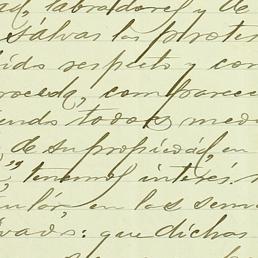 labradores y de
salvas las protes
ido respeto y con
roceda, comparece
endo todos med
de su propiedad, en
tenemos interés
ular, en los serv
vado: que dichos